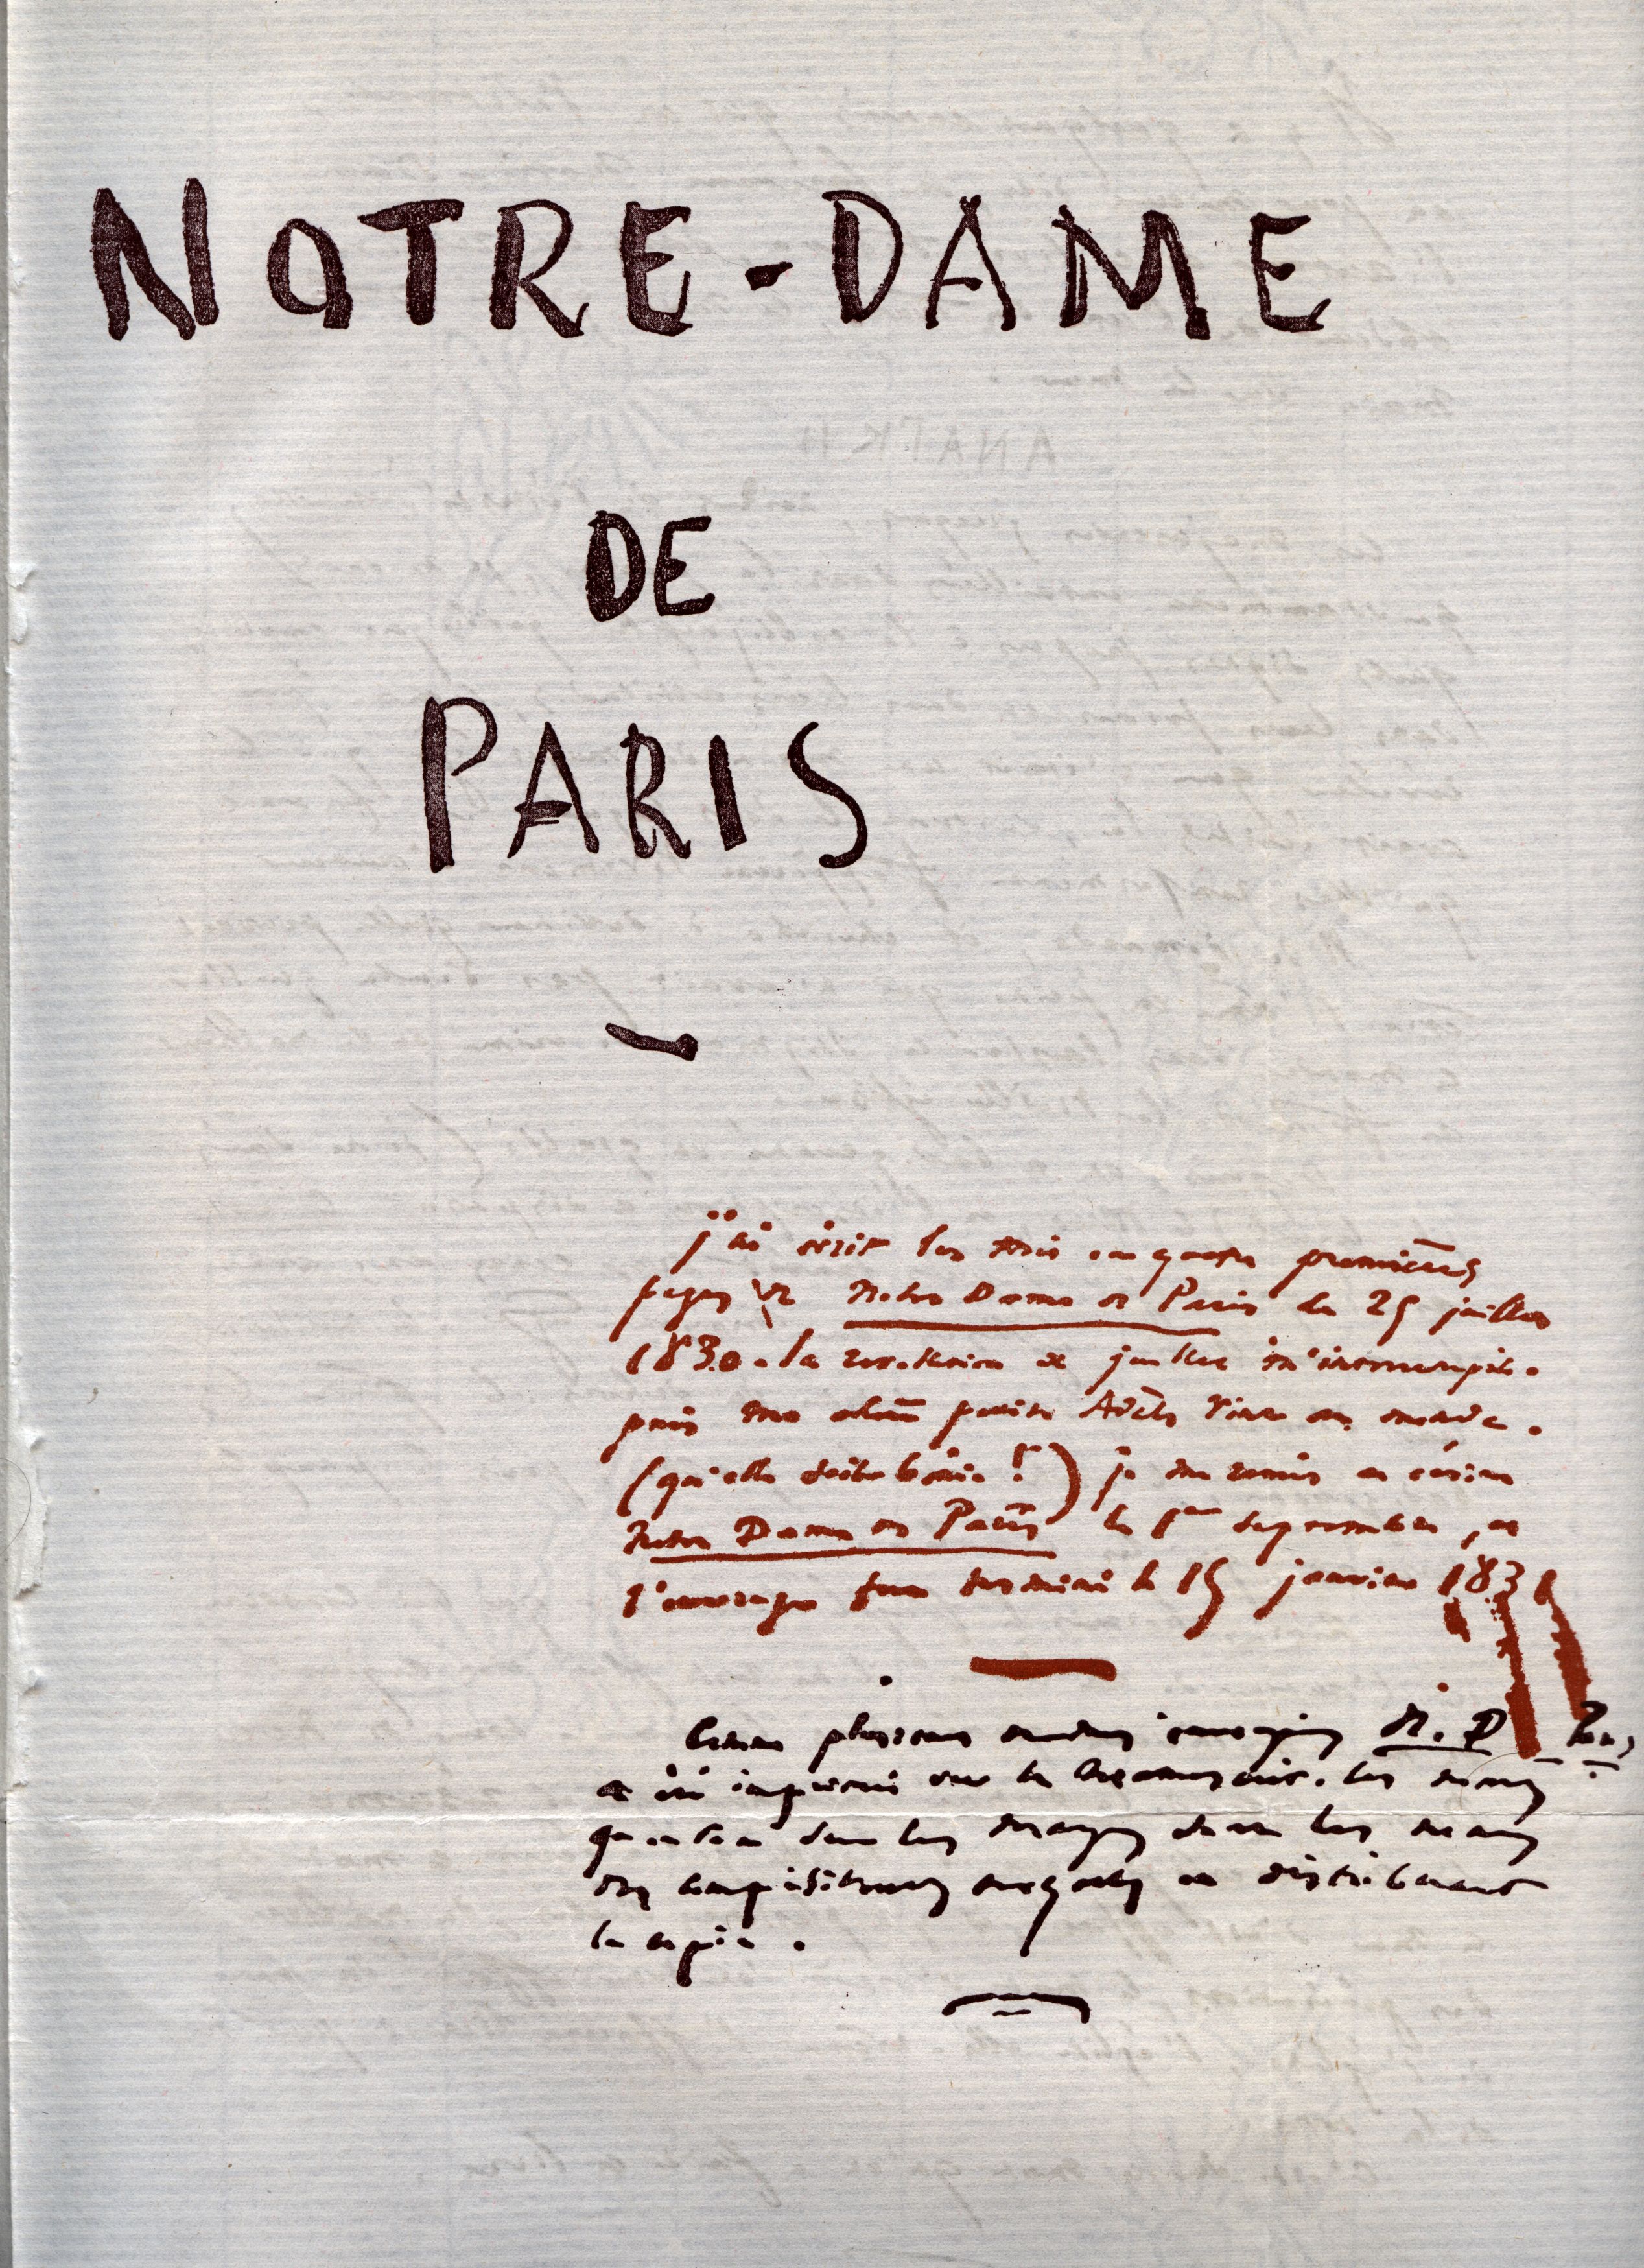 NOTRE-DAME
DE
PARIS
j'ai écrit les trois ou quatre premières
pages de Notre Dame de Paris le 25 juillet
1830. la révolution de juillet m'interrompit.
puis ma chère petite Adèle vint au monde.
(qu'elle soit bénie !) je me remis à écrire
Notre Dame de Paris le 1er septembre, et
l'ouvrage fut terminé le 15 janvier 1831
Comme plusieurs ouvrages N. D. Paris
a été imprimé sur le manuscrit. les noms
qu'on lit dans les marges sont les noms
des compositeurs auxquels on distribuait
la copie.